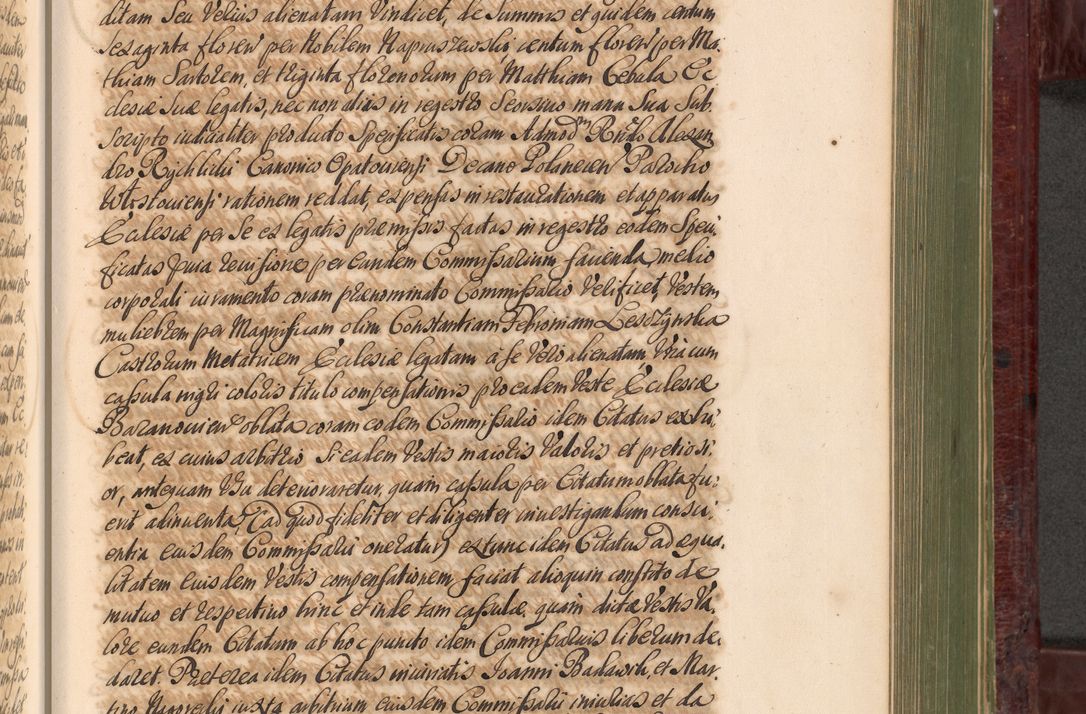 ditam Seu Velius alienatam Vindicet, de Summis et quidem centum
sexaginta floren' per Nobilem Napruszewski centum floren' per Ma-
thiam Sartorem, et triginta florenorum per Matthiam Cebula Ec
clesiæ Suæ legatis, nec non aliis in regestro Seorsivo manu Sua Sub,
scripto iudicialiter producto Specificatis coram Admodm Rndo Alexan
dro Rychlicki Canonico Opatoviensi Decano Polanecen' Parocho
Wlostoviensi rationem reddat, expensas in restaurationem et apparatus
Ecclesiæ per Se ex legatis præmissis factas in regestro eodem Speci,
ficatas pura revisione per eundem Commissarium facienda medio
corporali iuramento coram prænominato Commissario Verificet, Vestem
muliebrem per Magnificam olim Constantiam Leszczynska
Castrorum Metatricem Ecclesiæ legatam a se Vero alienatam Una cum
casula nigri coloris titulo compensationis pro eadem Veste Ecclesiæ
Baranovien' oblata coram eodem Commissario idem Citatus exhi,
beat, ex cuius arbitrio Si eadem Vestis maioris Valoris et pretiosi,
or, antequam Usu deterioraretur, quam casula per Citatum oblata fu,
erit adinventa, (ad quod fideliter et diligenter investigandum consci,
entia eiusdem Commissarii oneratur) extunc idem Citatus ad æqua,
litatem eiusdem Vestis compensationem faciat alioquin constito de
mutuo et respectivo hinc et inde tam casulæ, quam dictæ Vestis Va,
lore eundem Citatum ab hoc puncto idem Commissarius liberum de,
claret. Præterea idem Citatus iniuriatis Joanni Badawik, et Mar,
tino iuxta arbitrium eiusdem Commissarii iniurias et da